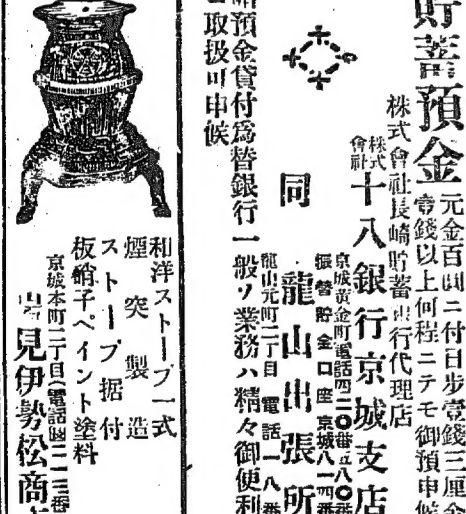 貯蓄預金
元金百圓ニ付日歩壹錢三厘
壹錢以上何程ニテモ御預申候
株式會社長崎貯蓄銀行代理店
株式會社十八銀行京城支店
京城黄金町電話四二〇番五八〇番
振替貯金口座京城八一四番
同龍山出張所
龍山元町二丁目電話一八番
預金貸付爲替銀行一般ノ業務ハ精々御便利
取扱可申候
和洋ストーブ一式
煙突製造
ストーブ据付
板硝子ペイント塗料
京城本町二丁目(電話
見伊勢松商